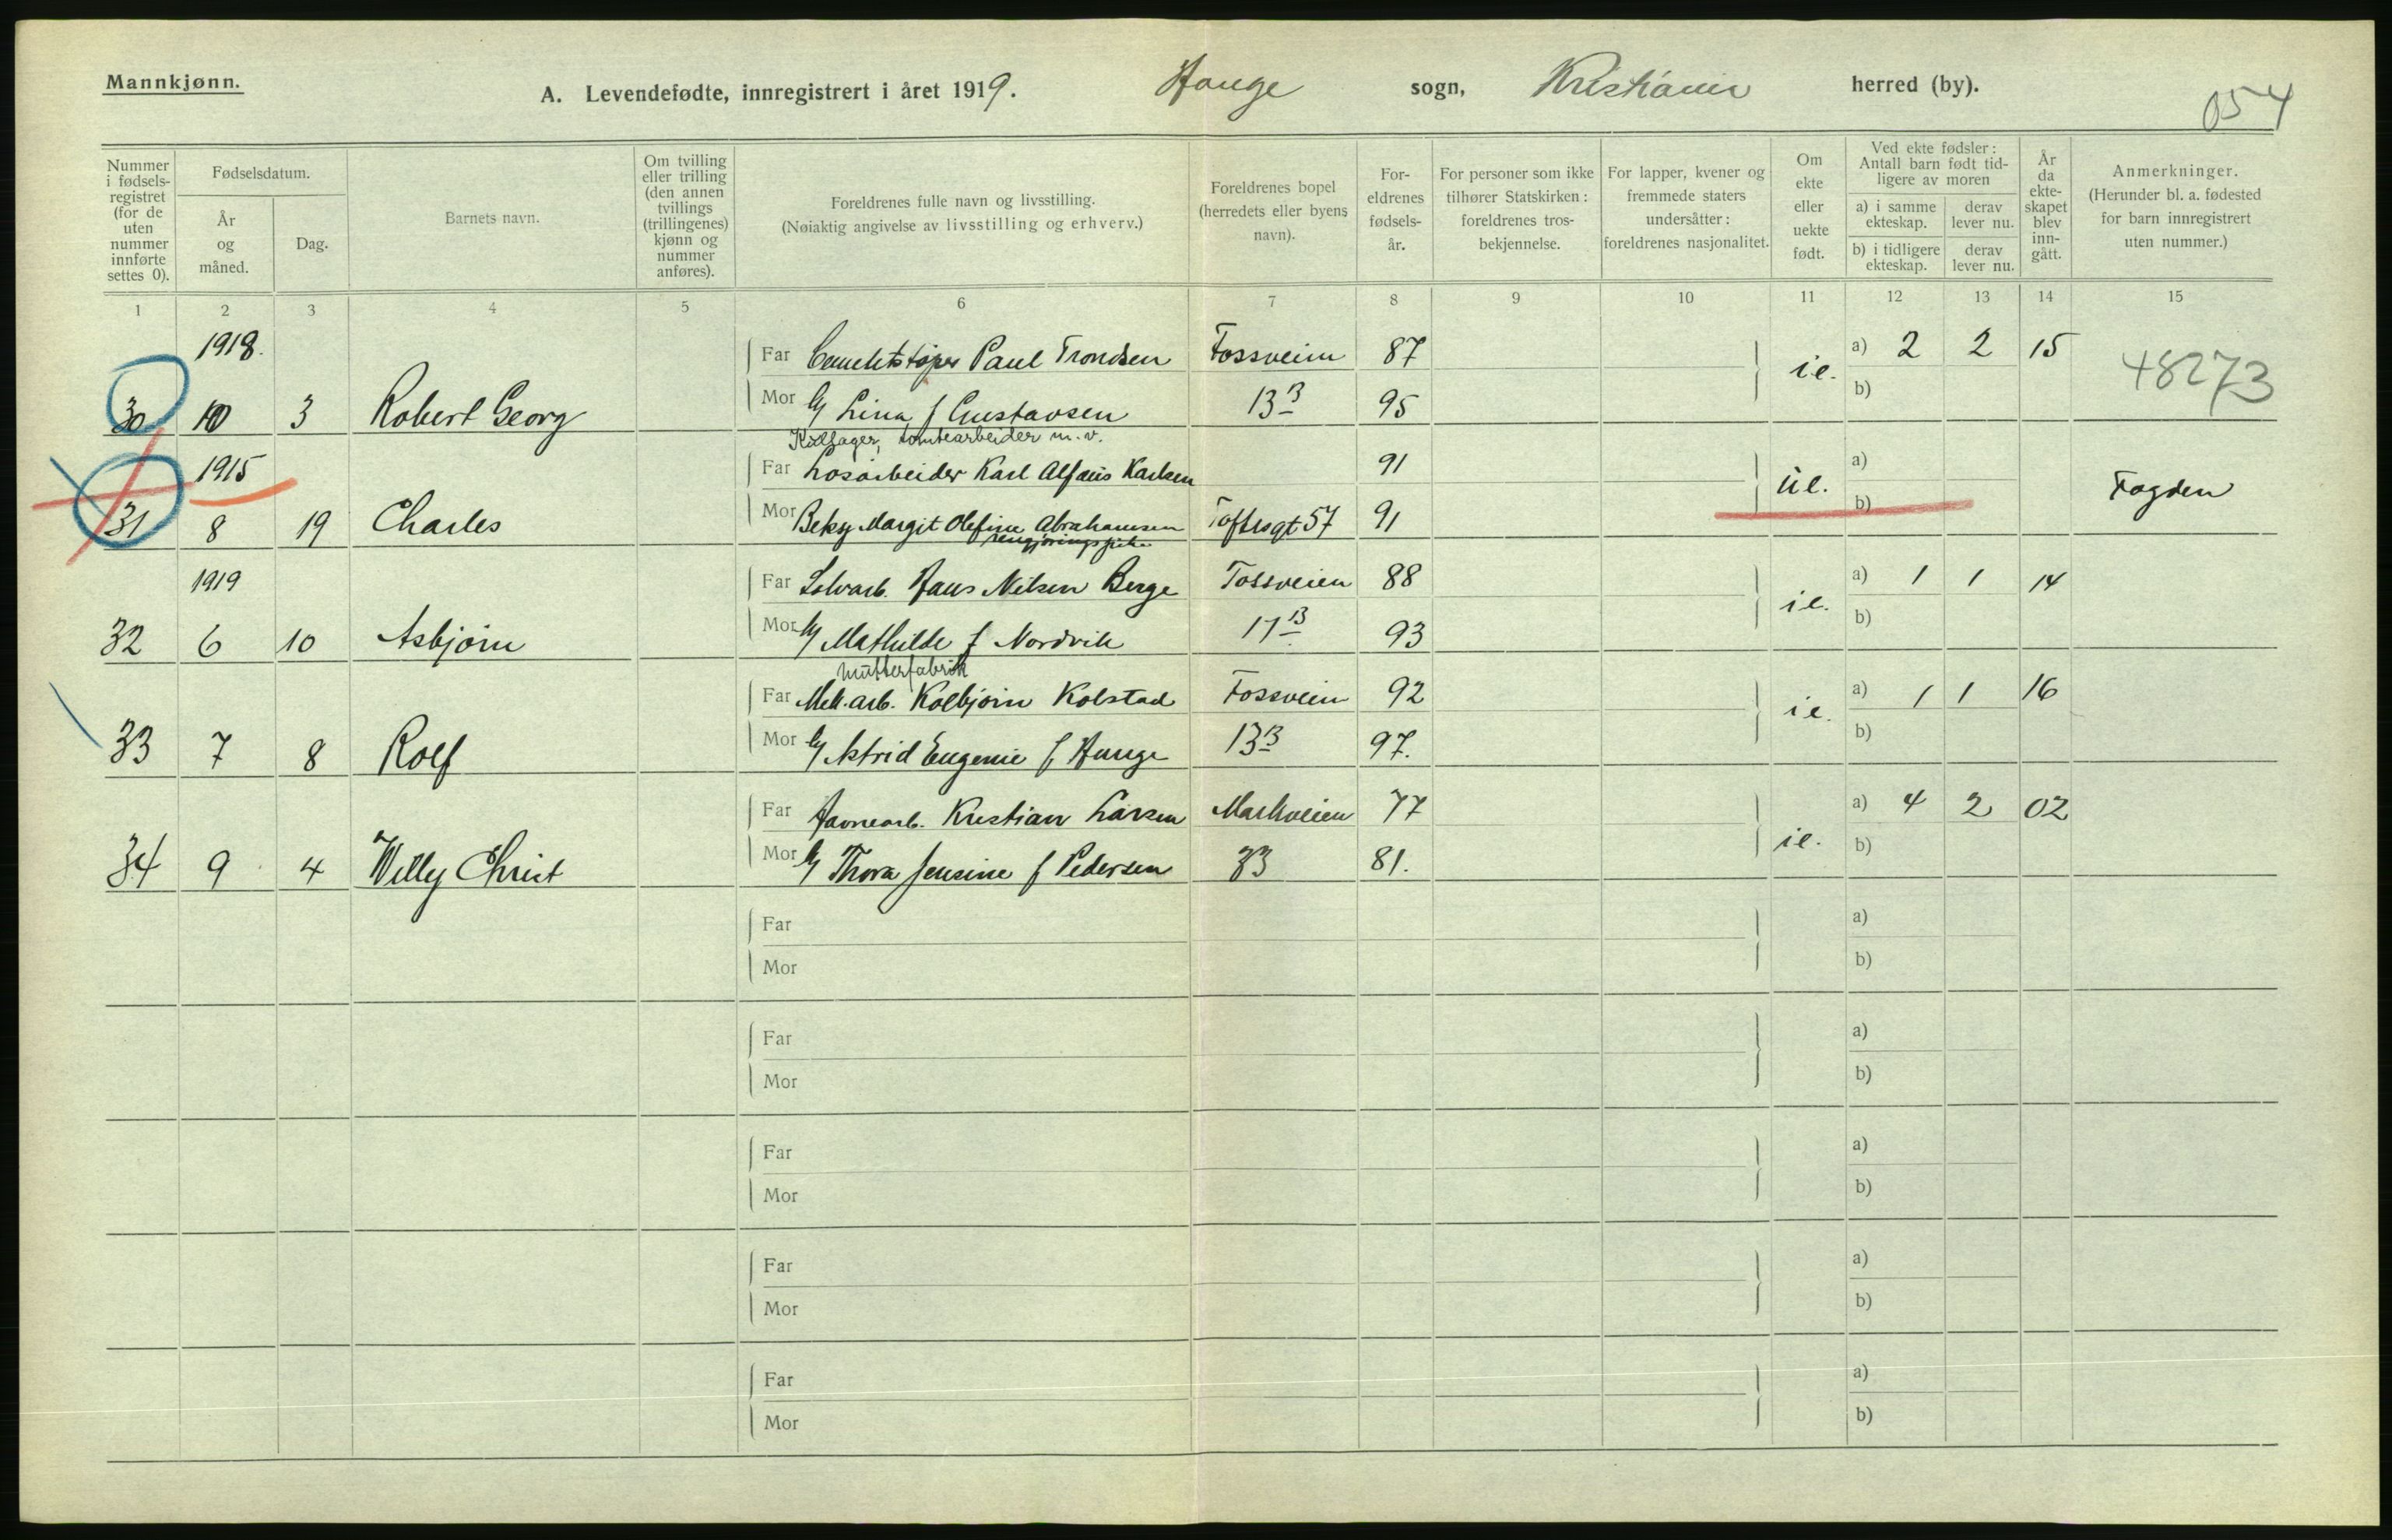 Mannkjønn.
A. Levendefødte, innregistrert i året 1919. Hauge sogn, Kristiania herred (by).
054
Nummer i fødselsregistret (for de uten nummer innførte settes 0).
Fødselsdatum.
År og måned.
Dag.
Barnets navn.
Om tvilling eller trilling (den annen tvillings (trillingenes) kjønn og nummer anføres).
Foreldrenes fulle navn og livsstilling.
(Nøiaktig angivelse av livsstilling og erhverv.)
Foreldrenes bopel (herredets eller byens navn).
For-eldrenes fødsels-år.
For personer som ikke tilhører Statskirken: foreldrenes tros-bekjennelse.
For lapper, kvener og fremmede staters undersåtter: foreldrenes nasjonalitet.
Om ekte eller uekte født.
Ved ekte fødsler: Antall barn født tid-ligere av moren
a) i samme ekteskap.
derav lever nu.
b) i tidligere ekteskap.
derav lever nu.
År da ekte-skapet blev inn-gått.
Anmerkninger.
(Herunder bl. a. fødested for barn innregistrert uten nummer.)
1 2 3 4 5 6 7 8 9 10 11 12 13 14 15
1918.
Far Paul Trondsen Fossveien 87 a) 2 2 15
30 10 3 Robert Georg Mor Lina f Gustavsen 13 B 95 i e. b) 48273
tomtearbeider m.v.
1915
Far Losarbeider Karl Alfaus Karlsen 91 a)
31 8 19 Charles Mor Margit Olefine Abrahamsen Toftesgt 57 91 u e. b) Fagden
rengjøringspike
1919
Far Hans Nilsen Berge Fossveien 88 a) 1 1 14
32 6 10 Asbjørn Mor Mathilde f Nordvik 17 B 93 i e. b)
Mutterfabrik
Far Mek. arb. Kolbjørn Kolstad Fossveien 92 a) 1 1 16
33 7 8 Rolf Mor Astrid Eugenie f Hauge 13 B 97. i e. b)
Far Kristian Larsen Markveien 77 a) 4 2 02
34 9 4 Willy Christ Mor Thora Jensine f Pedersen 33 81. i e. b)
Far a)
Mor b)
Far a)
Mor b)
Far a)
Mor b)
Far a)
Mor b)
Far a)
Mor b)